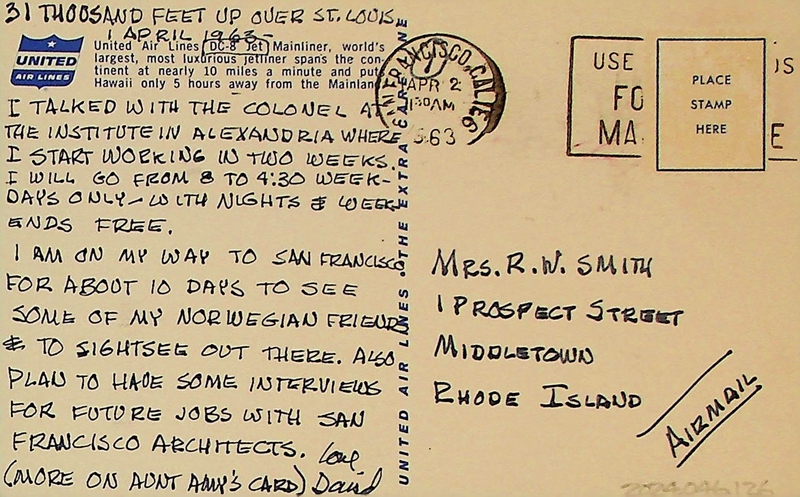 31 THOUSAND FEET UP OVER ST. LOUIS
1 APRIL 1963-
UNITED
AIR LINES
United Air Lines DC-8 Jet Mainliner, world's
largest, most luxurious jetliner spans the con-
tinent at nearly 10 miles a minute and put
Hawaii only 5 hours away from the Mainlan
I TALKED WITH THE COLONEL AT
THE INSTITUTE IN ALEXANDRIA WHERE
I START WORKING IN TWO WEEKS.
I WILL GO FROM 8 TO 4:30 WEEK-
DAYS ONLY - WITH NIGHTS & WEEK
ENDS FREE.
I AM ON MY WAY TO SAN FRANCISCO
FOR ABOUT 10 DAYS TO SEE
SOME OF MY NORWEGIAN FRIENDS
& TO SIGHTSEE OUT THERE. ALSO
PLAN TO HAVE SOME INTERVIEWS
FOR FUTURE JOBS WITH SAN
FRANCISCO ARCHITECTS. Love
(MORE ON AUNT AMY'S CARD) David
UNITED AIR LINES • THE EXTRA CARE LINE
FRANCISCO, CALIF.
APR 2
1:30 AM
63
USE
FO
MA
PLACE
STAMP
HERE
MRS. R. W. SMITH
1 PROSPECT STREET
MIDDLETOWN
RHODE ISLAND
AIRMAIL